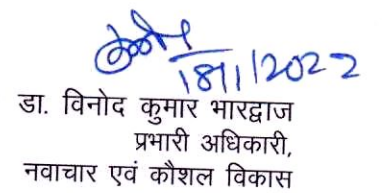 18/1/2022
डा. विनोद कुमार भारद्वाज
प्रभारी अधिकारी,
नवाचार एवं कौशल विकास